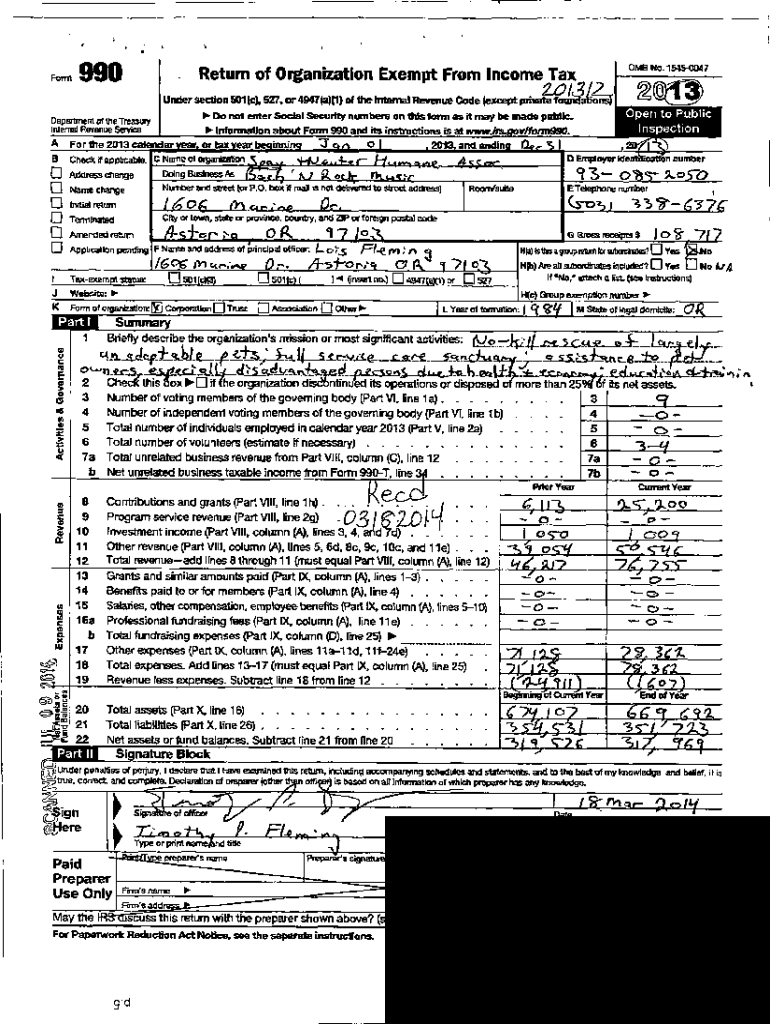 Form 990
Return of Organization Exempt From Income Tax
OMB No. 1545-0047
201312
2013
Under section 501(c), 527, or 4947(a)(1) of the Internal Revenue Code (except private foundations)
Department of the Treasury
Internal Revenue Service
► Do not enter Social Security numbers on this form as it may be made public.
► Information about Form 990 and its instructions is at www.irs.gov/form990.
Open to Public
Inspection
A For the 2013 calendar year, or tax year beginning Jan 01 , 2013, and ending Dec 31 , 2013
B Check if applicable:
Address change
Name change
Initial return
Terminated
Amended return
Application pending
C Name of organization Spay + Neuter Humane Assoc
Doing Business As Bach 'N Rock Music
Number and street (or P.O. box if mail is not delivered to street address) Room/suite
1606 Marine Dr.
City or town, state or province, country, and ZIP or foreign postal code
Astoria OR 97103
D Employer identification number
93-0852050
E Telephone number
(503) 338-6376
G Gross receipts $ 108 717
F Name and address of principal officer: Lois Fleming
1606 Marine Dr. Astoria OR 97103
H(a) Is this a group return for subordinates? Yes No
H(b) Are all subordinates included? Yes No NA
If "No," attach a list. (see instructions)
I Tax-exempt status: 501(c)(3) 501(c) ( ) ◄ (insert no.) 4947(a)(1) or 527
J Website: ►
H(c) Group exemption number ►
K Form of organization: Corporation Trust Association Other ►
L Year of formation: 1984
M State of legal domicile: OR
Part I Summary
Activities & Governance
1 Briefly describe the organization's mission or most significant activities: No-kill rescue of largely
un adoptable pets; full service care sanctuary; assistance to pet
owners, especially disadvantaged persons due to health + economy; education & trainin
2 Check this box ► if the organization discontinued its operations or disposed of more than 25% of its net assets.
3 Number of voting members of the governing body (Part VI, line 1a) . 3 9
4 Number of independent voting members of the governing body (Part VI, line 1b) 4 -0-
5 Total number of individuals employed in calendar year 2013 (Part V, line 2a) 5 -0-
6 Total number of volunteers (estimate if necessary) 6 3-4
7a Total unrelated business revenue from Part VIII, column (C), line 12 7a -0-
b Net unrelated business taxable income from Form 990-T, line 34 7b -0-
Recd
03182014
Prior Year Current Year
Revenue
8 Contributions and grants (Part VIII, line 1h) . 6,113 25,200
9 Program service revenue (Part VIII, line 2g) -0- -0-
10 Investment income (Part VIII, column (A), lines 3, 4, and 7d) 1 050 1 009
11 Other revenue (Part VIII, column (A), lines 5, 6d, 8c, 9c, 10c, and 11e) . 39 054 50 546
12 Total revenue—add lines 8 through 11 (must equal Part VIII, column (A), line 12) 46,217 76,755
Expenses
13 Grants and similar amounts paid (Part IX, column (A), lines 1–3) . -0- -0-
14 Benefits paid to or for members (Part IX, column (A), line 4) -0- -0-
15 Salaries, other compensation, employee benefits (Part IX, column (A), lines 5–10) -0- -0-
16a Professional fundraising fees (Part IX, column (A), line 11e) -0- -0-
b Total fundraising expenses (Part IX, column (D), line 25) ►
17 Other expenses (Part IX, column (A), lines 11a–11d, 11f–24e) 71 128 78,362
18 Total expenses. Add lines 13–17 (must equal Part IX, column (A), line 25) 71 128 78,362
19 Revenue less expenses. Subtract line 18 from line 12 (24 911) (1607)
Net Assets or
Fund Balances
Beginning of Current Year End of Year
20 Total assets (Part X, line 16) 674,107 669,692
21 Total liabilities (Part X, line 26) 354,531 351,723
22 Net assets or fund balances. Subtract line 21 from line 20 319,576 317,969
Part II Signature Block
Under penalties of perjury, I declare that I have examined this return, including accompanying schedules and statements, and to the best of my knowledge and belief, it is
true, correct, and complete. Declaration of preparer (other than officer) is based on all information of which preparer has any knowledge.
Sign
Here
18 Mar 2014
Signature of officer
Date
Timothy P. Fleming
Type or print name and title
Paid
Preparer
Use Only
Print/Type preparer's name
Preparer's signature
Firm's name ►
Firm's address ►
May the IRS discuss this return with the preparer shown above? (s
For Paperwork Reduction Act Notice, see the separate instructions.
SCANNED
p.6